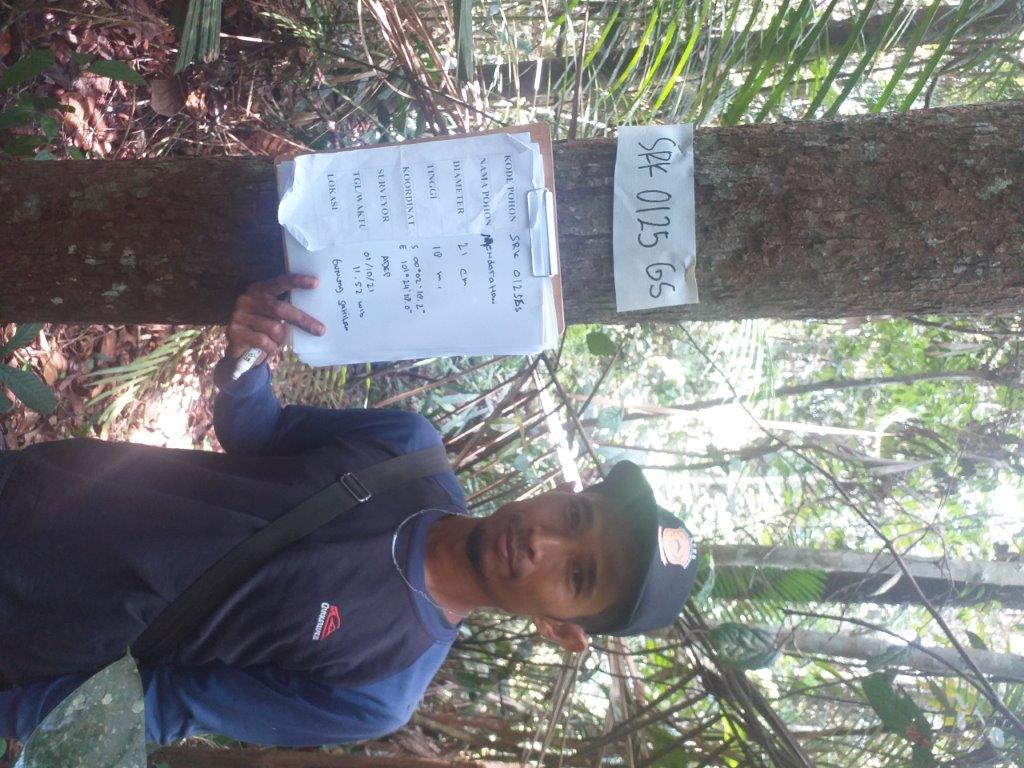 SRK 0125 GS
KODE POHON SRK 0125GS
NAMA POHON Mendarahan
DIAMETER 21 cm
TINGGI 18 m.
KOORDINAT S 00°02'18.2"
E 101°24'18.0"
SURVEYOR
TGL/WAKTU 01/10/21
11.52 wib
LOKASI Gunung Sahilan
QUIKSILVER